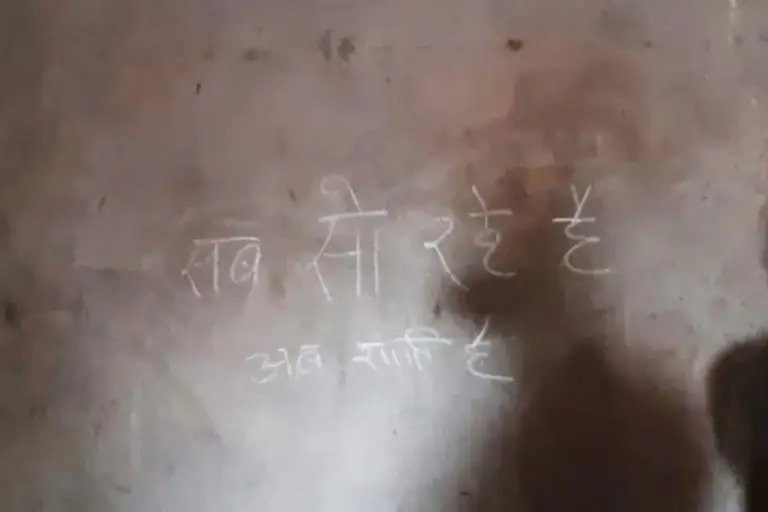 सब सो रहे है
अब शाति है